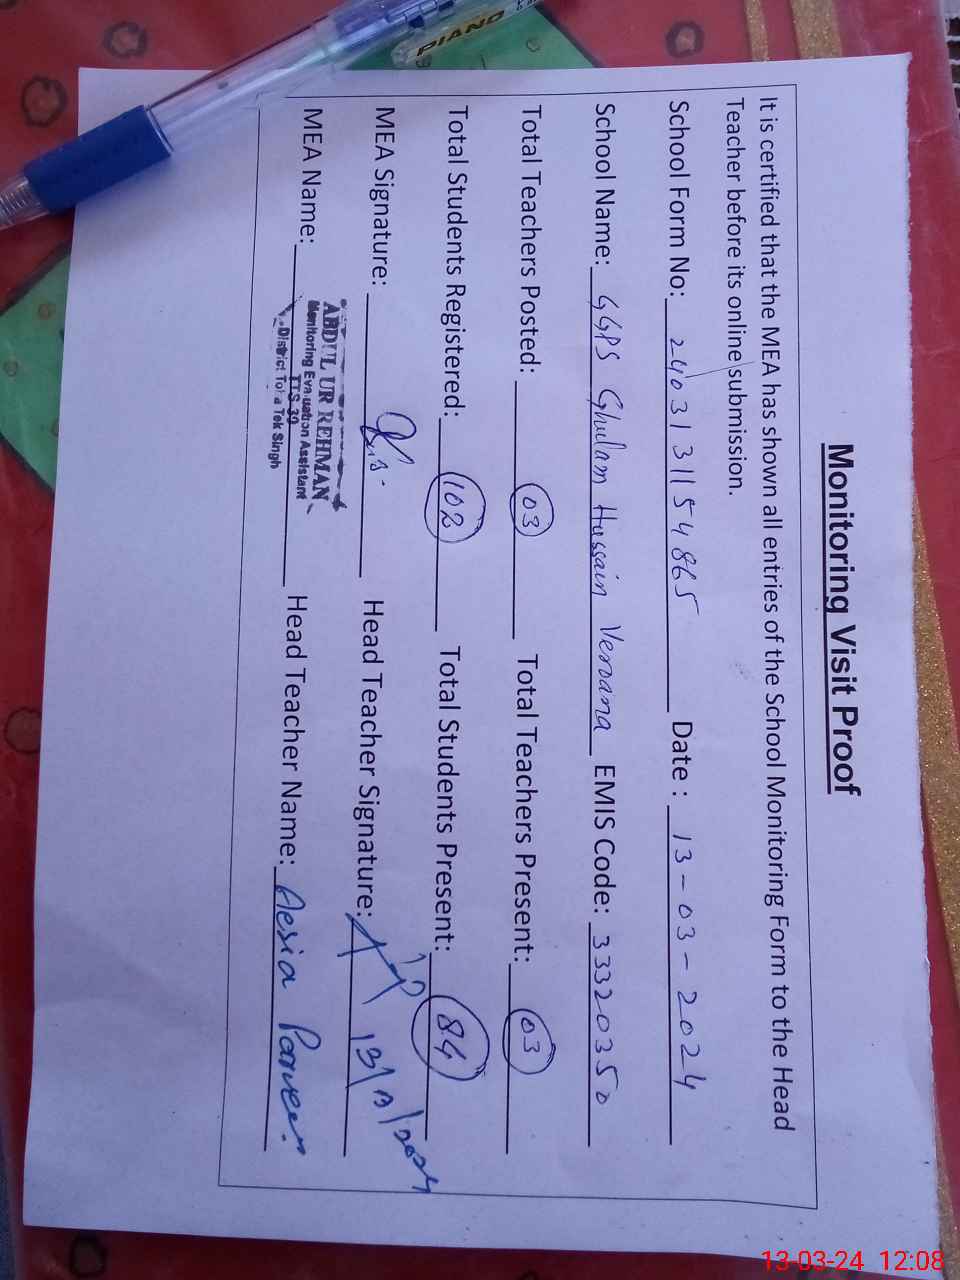 PIANO
Monitoring Visit Proof
It is certified that the MEA has shown all entries of the School Monitoring Form to the Head
Teacher before its online submission.
School Form No: 2403131154865 Date : 13-03-2024
School Name: GGPS Ghulam Hussain Verdana EMIS Code: 33320350
Total Teachers Posted: 03 Total Teachers Present: 03
Total Students Registered: 102 Total Students Present: 84
MEA Signature: Head Teacher Signature:
MEA Name: Head Teacher Name: Aesia Parveen
ABDUL UR REHMAN
Monitoring Evaluation Assistant
TTS-39
District Toba Tek Singh
13-03-24 12:08